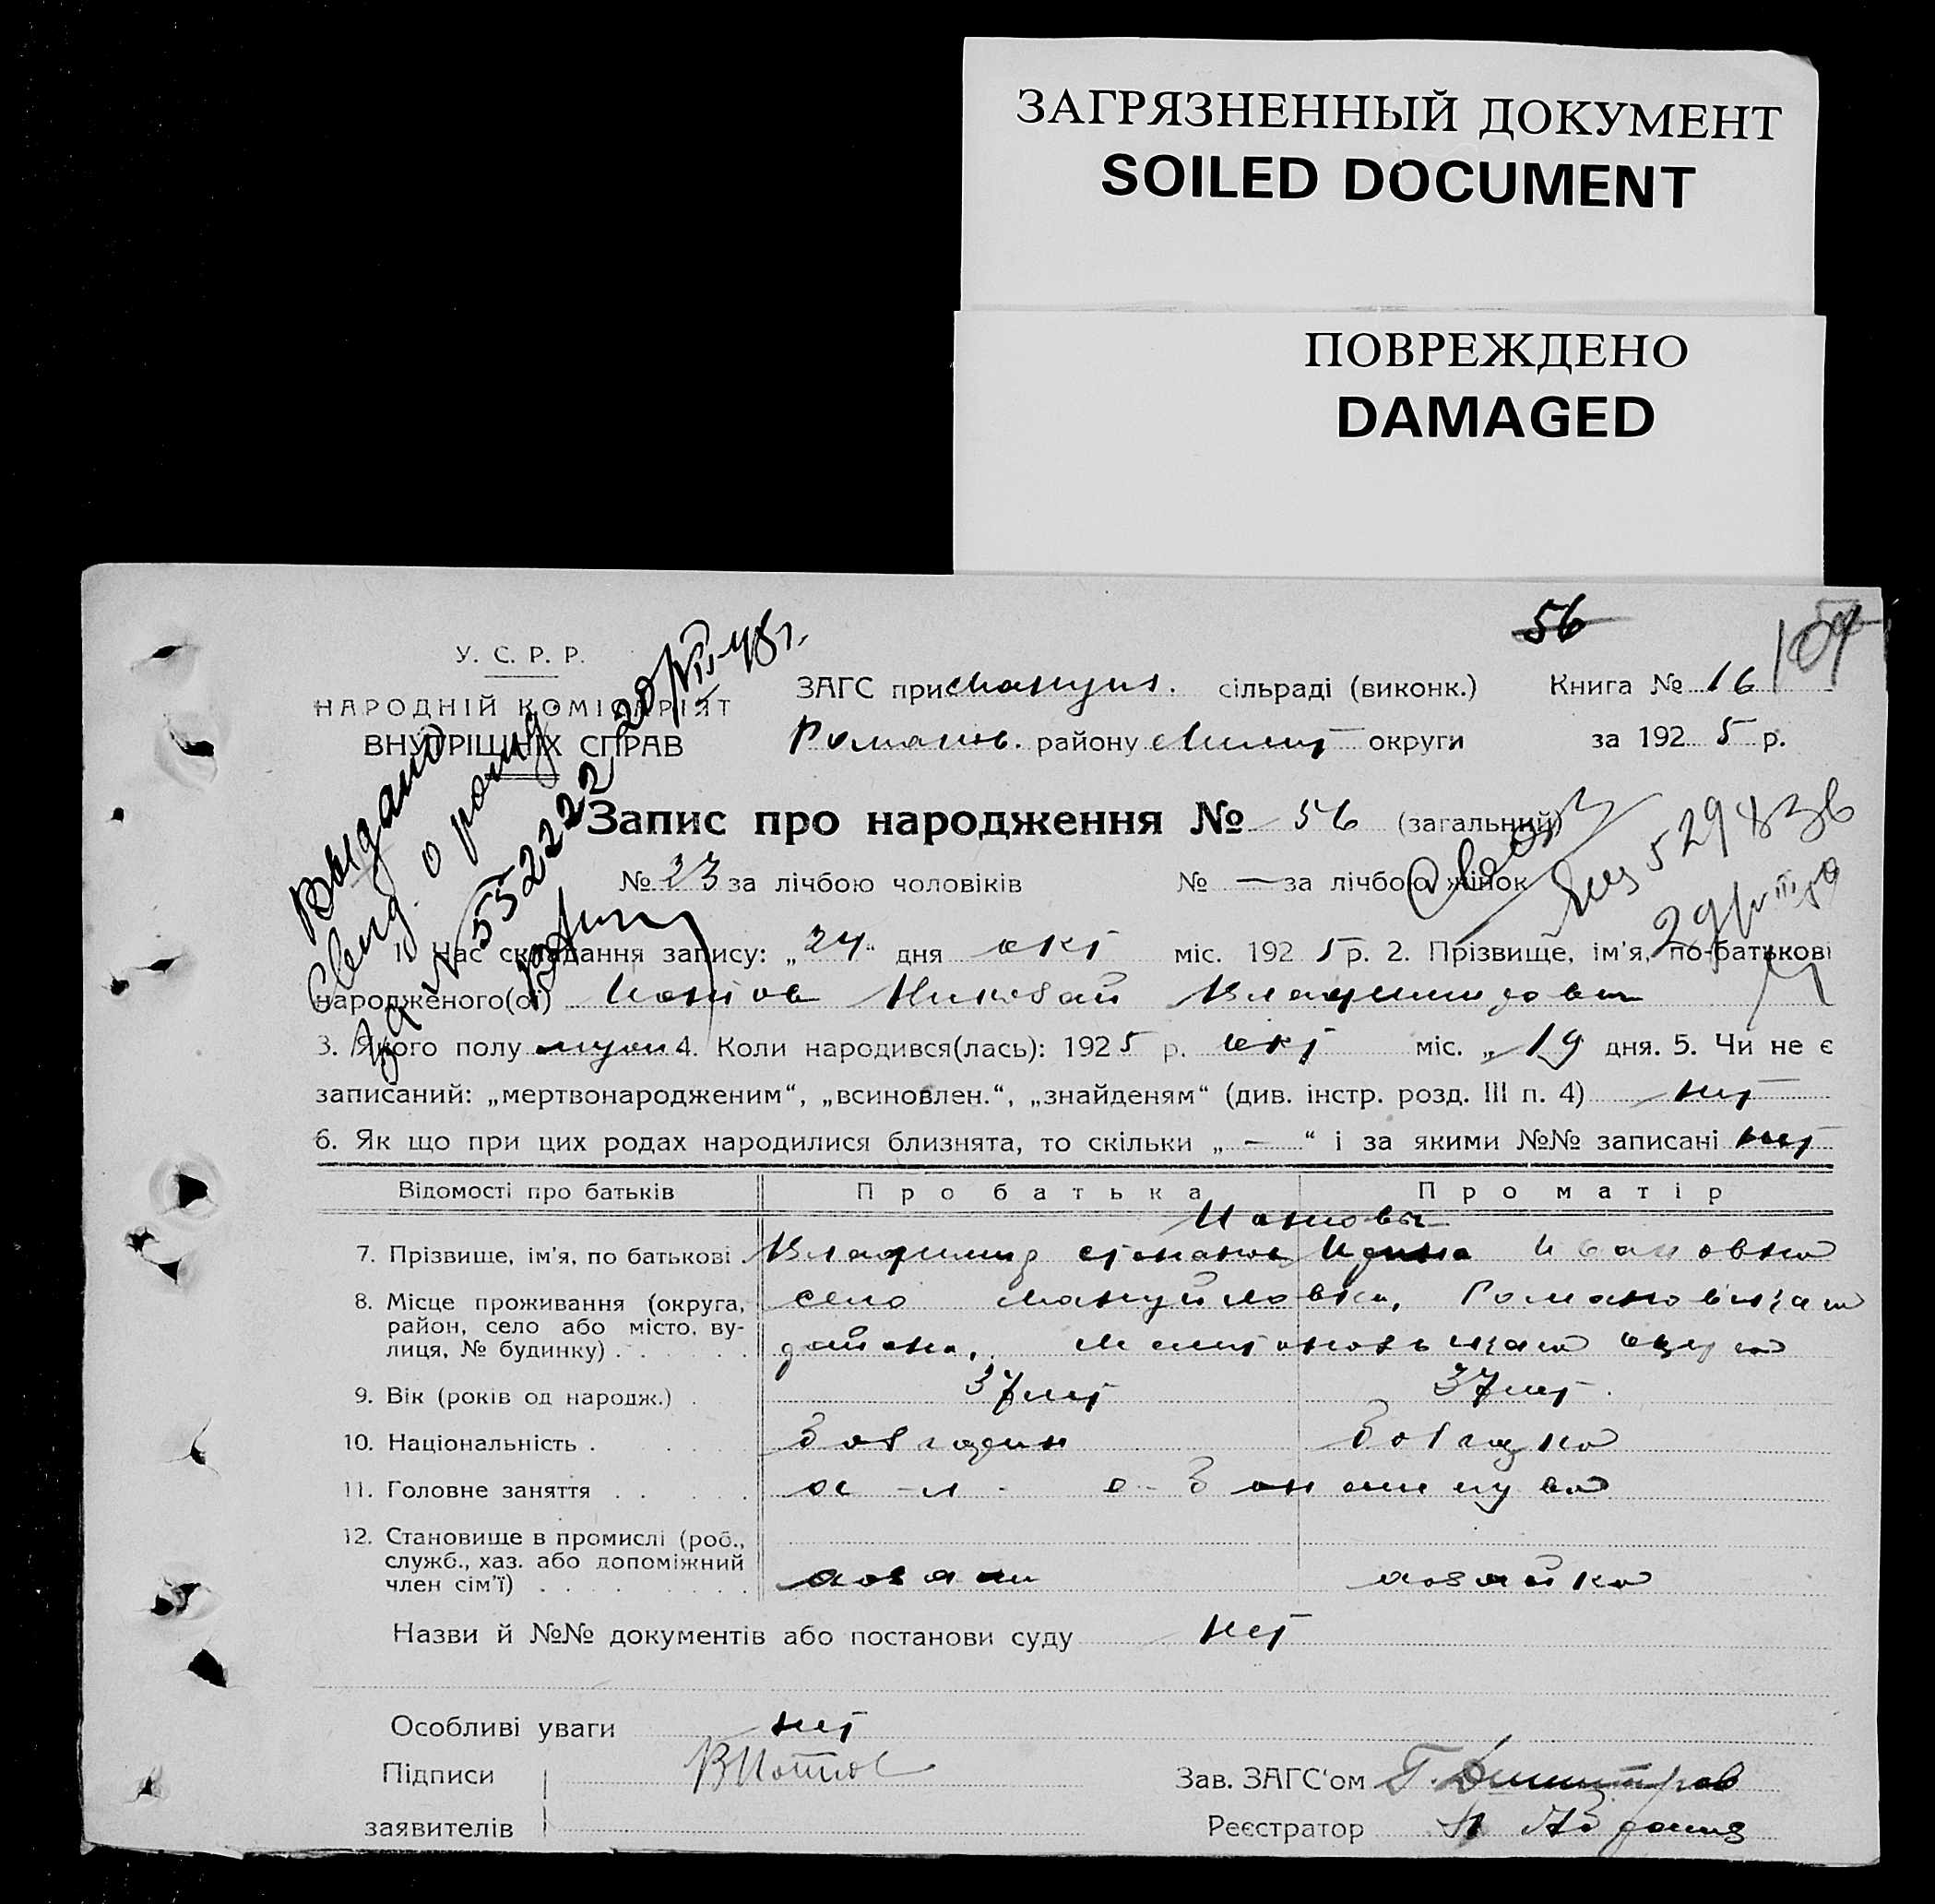 ЗАГРЯЗНЕННЫЙ ДОКУМЕНТ
SOILED DOCUMENT
ПОВРЕЖДЕНО
DAMAGED
56
У. С. Р. Р.
НАРОДНІЙ КОМІСАРІЯТ
ВНУТРІШНІХ СПРАВ
ЗАГС при Мануил. сільраді (виконк.) Книга № 16
Романов. району Мелит округи за 192 5 р.
Выдано
Свид. о рожд
552222
Запис про народження № 56 (загальний)
№ 23 за лічбою чоловіків № — за лічбою жінок
1. Час складання запису: „24" дня окт міс. 192 5 р. 2. Прізвище, ім'я, по-батькові
народженого(ої) Николай Владимирович
3. Якого полу муж 4. Коли народився(лась): 192 5 р. окт міс. „19 дня. 5. Чи не є
записаний: „мертвонародженим“, „всиновлен.“, „знайденям“ (див. інстр. розд. III п. 4) нет
6. Як що при цих родах народилися близнята, то скільки „ — “ і за якими №№ записані нет
Відомості про батьків Про батька Про матір
7. Прізвище, ім'я, по батькові . Владимир Степанов Ирина Ивановна
8. Місце проживання (округа, село Мануйловка, Романовская
район, село або місто, ву-
лиця, № будинку) . . района, округа
9. Вік (років од народж.) . 37 лет 37 лет.
10. Національність . Болгарин Болгарка
11. Головне заняття . .
12. Становище в промислі (роб.,
служб., хаз. або допоміжний
член сім'ї) . . . хозяин хозяйка
Назви й №№ документів або постанови суду нет
Особливі уваги нет
Підписи
Зав. ЗАГС‘ом Г. Димитров
заявителів
Реєстратор